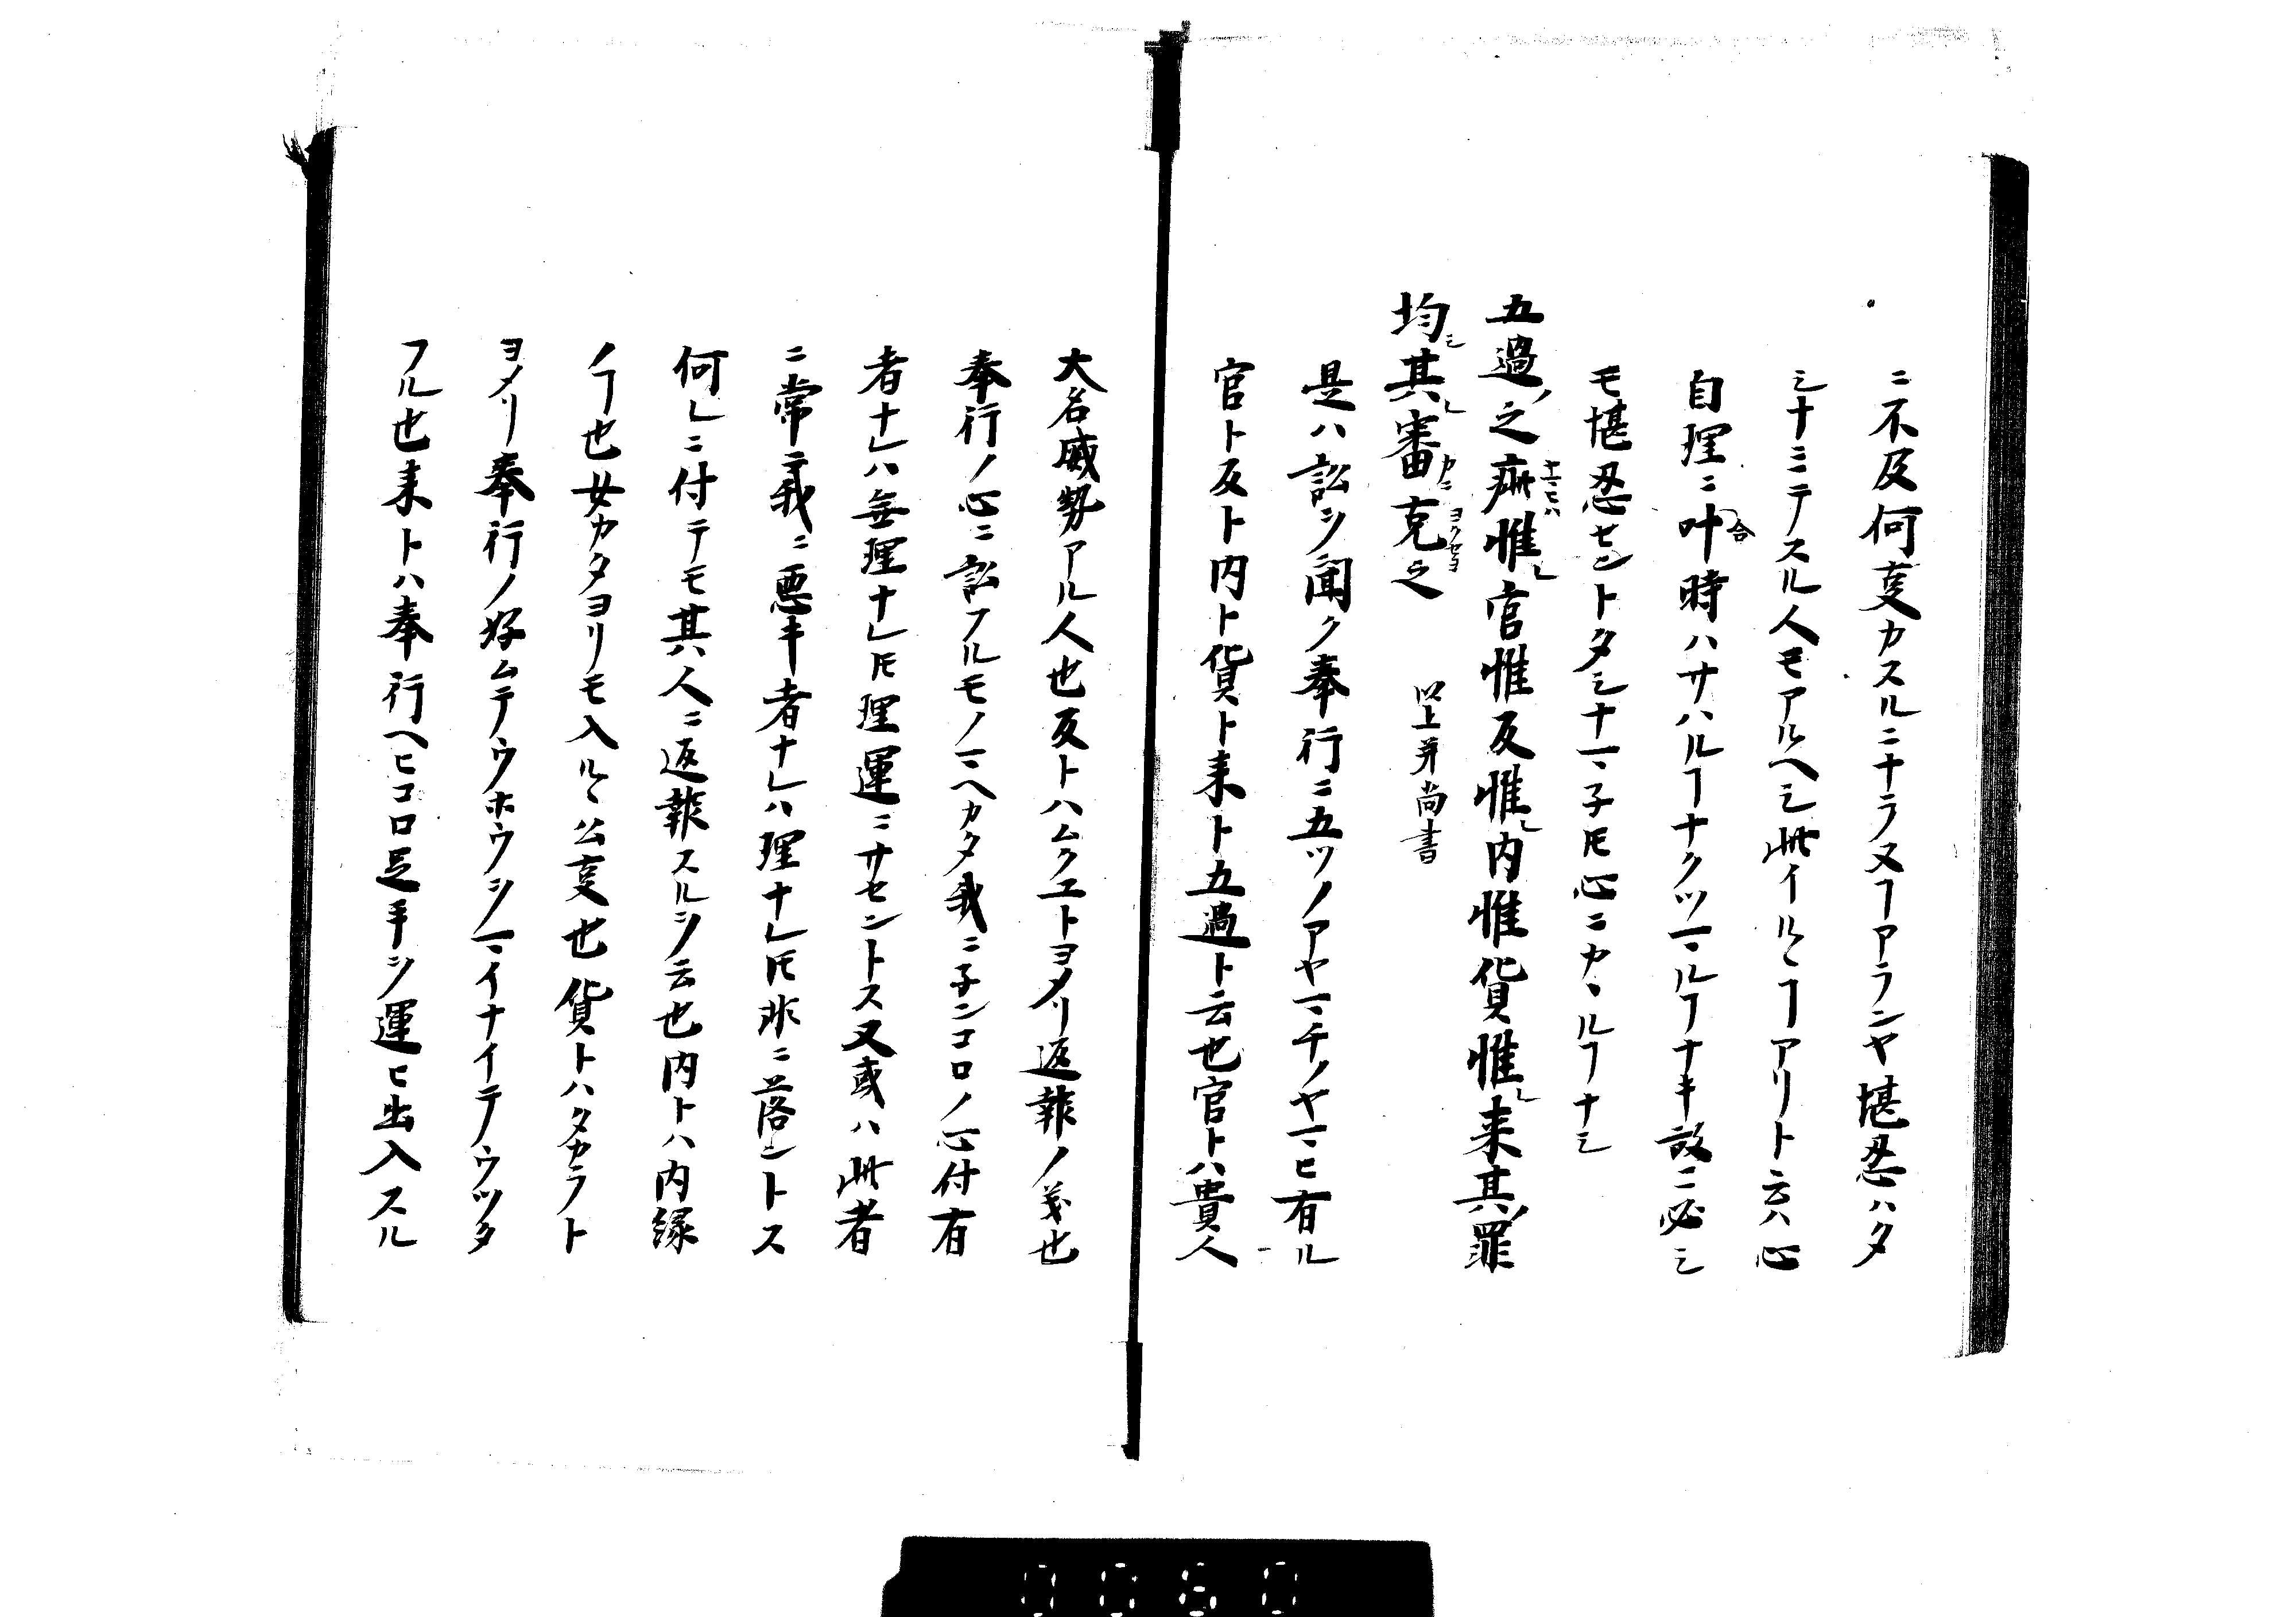 ニ不及何事カスルニナラヌヿアランヤ堪忍ハタ
シナミテスル人モアルヘシ此イルヽヿアリト云ハ心
自理ニ叶時ハサハルヿナクツマルヿナキ故ニ必シ
合
モ堪忍センドタシナマ子ドモ心ニカヽルヿナシ
五過ノ之疵惟官惟反惟内惟貨惟来其ノ罪
均シ其レ審カニ克之 以上并尚書
是ハ訟ヲ聞ク奉行ニ五ツノアヤマチノヤマヒ有ル
官ト反ト内ト貨ト来ト五過ト云也官トハ貴人
大名威勢アル人也反トハムクエトヨメリ返報ノ義也
奉行ノ心ニ訟フルモノマヘカタ我ニ子ンコロノ心付有
者ナレハ無理ナレ𪜈理運ニサセントス又或ハ此者
ニ常ニ我ニ悪キ者ナレハ理ナレ𪜈非ニ落ントス
何レニ付テモ其人ニ返報スルヲ云也内トハ内縁
ノヿ也女カタヨリモ入ルヽ公事也貨トハタカラト
ヨメリ奉行ノ好ムテウホウヲマイナイテウツタ
フル也来トハ奉行ヘヒコロ足手ヲ運ヒ出入スル